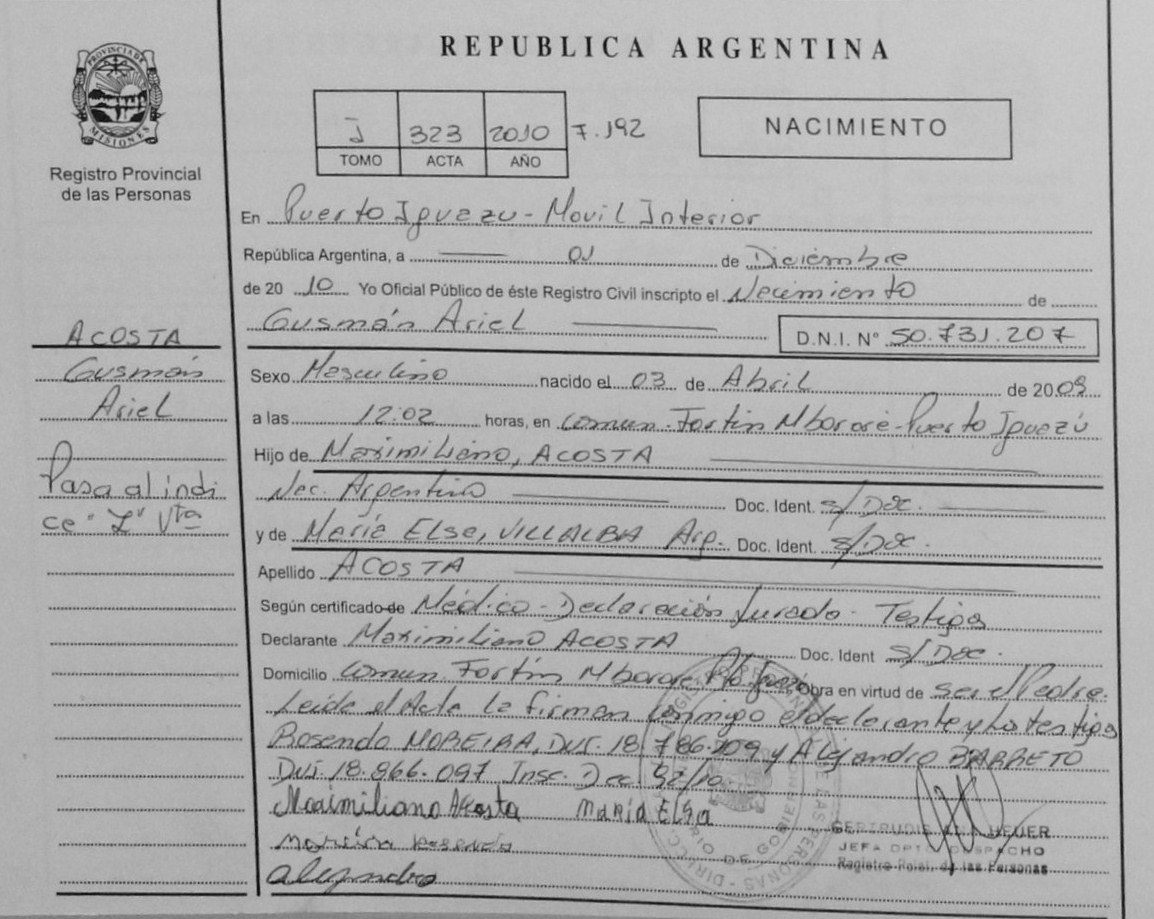 PROVINCIA DE
MISIONES
Registro Provincial
de las Personas
REPUBLICA ARGENTINA
J 323 2010 7.192
TOMO ACTA AÑO
NACIMIENTO
En Puerto Iguazu - Movil Interior
República Argentina, a 01 de Diciembre
de 20 10 Yo Oficial Público de éste Registro Civil inscripto el Nacimiento de
Gusmán Ariel
D.N.I. Nº 50.731.207
ACOSTA
Gusmán
Ariel
Pasa al indi
ce "Z" Vta
Sexo Masculino nacido el 03 de Abril de 2009
a las 12:02 horas, en comun. Fortin Mbororé - Puerto Iguazú
Hijo de Maximiliano, ACOSTA
Nac. Argentina Doc. Ident. s/Doc.
y de María Elsa, VILLALBA Arg. Doc. Ident. s/Doc.
Apellido ACOSTA
Según certificado de Médico - Declaración Jurada - Testigos
Declarante Maximiliano ACOSTA Doc. Ident s/Doc.
Domicilio comun. Fortín Mbororé Pto Iguazú Obra en virtud de ser el Padre.
Leída el Acta la firman conmigo el declarante y los testigos
Rosendo MOREIRA, DNI. 18.786.209 y Alejandro BARRETO
DNI. 18.866.097 Insc. Dec. 92/10
Maximiliano Acosta MARIA ELSA
Moreira Rosendo
Alejandro
JEFA DPTO. DESPACHO
Registro Pcial. de las Personas